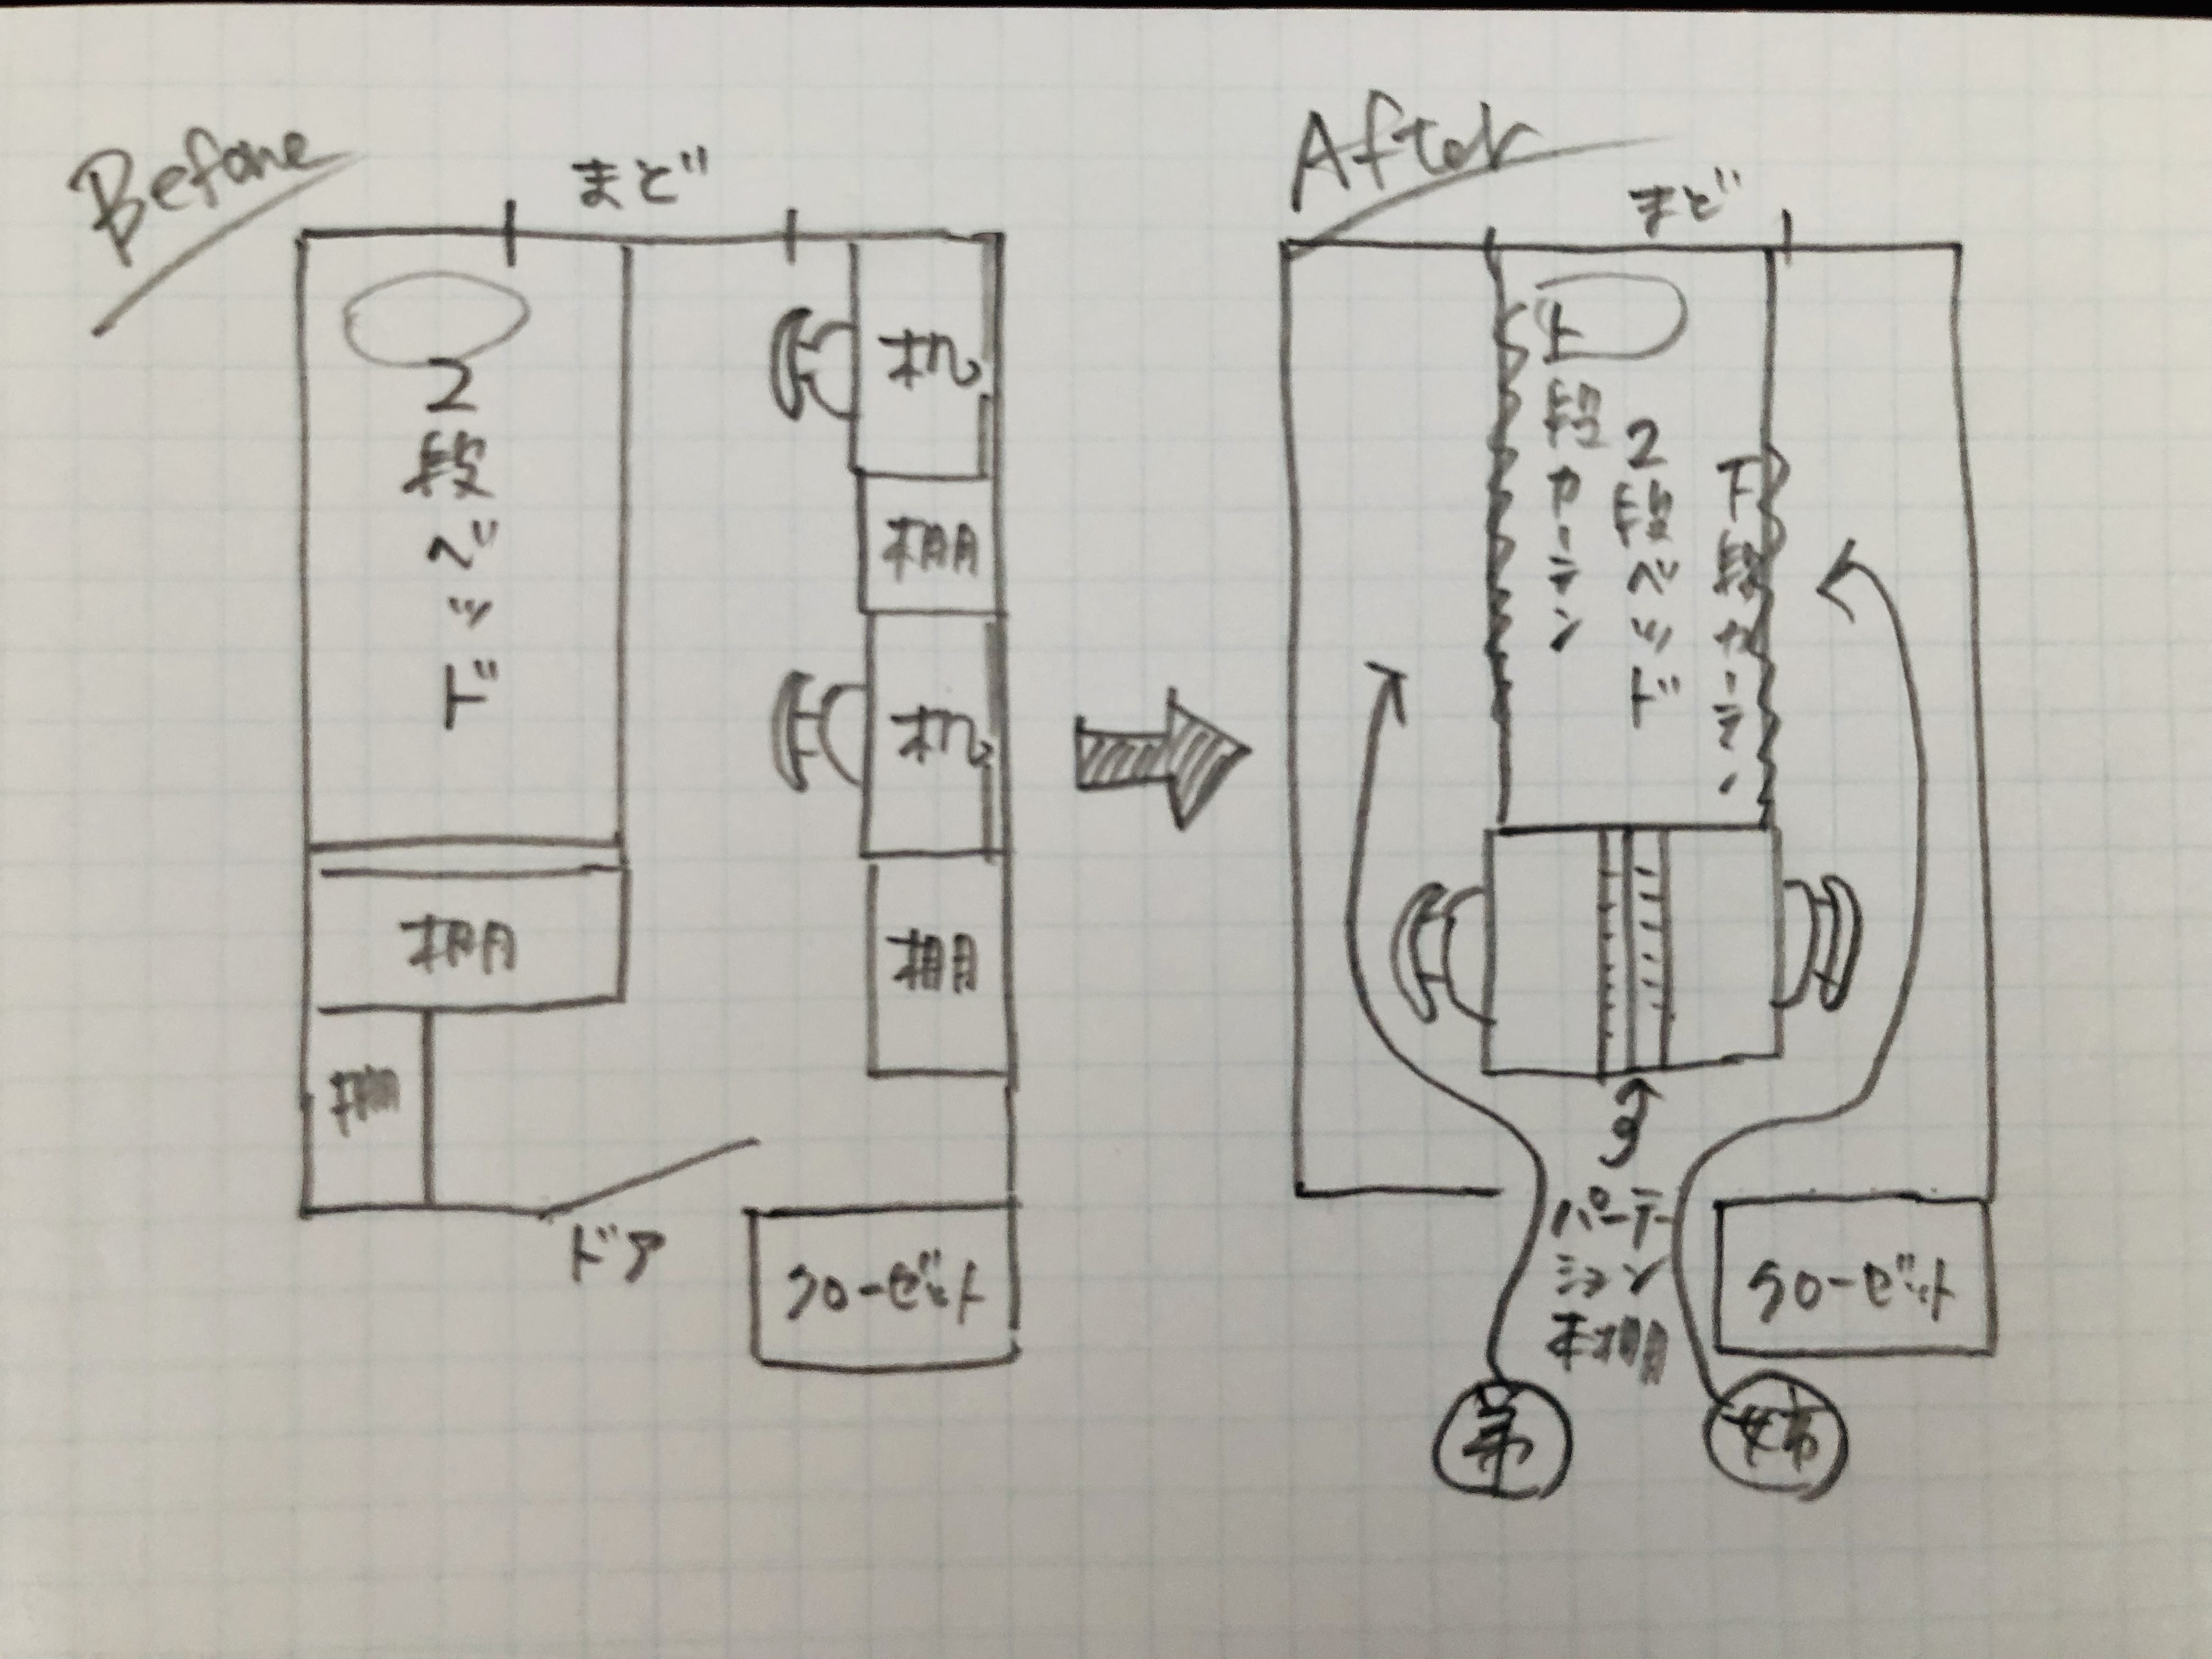 Before
まど
2段ベッド
机
棚
机
棚
棚
棚
ドア
クローゼット
After
まど
上段カーテン
2段ベッド
下段カーテン
パーテ
ション
本棚
クローゼット
弟
姉